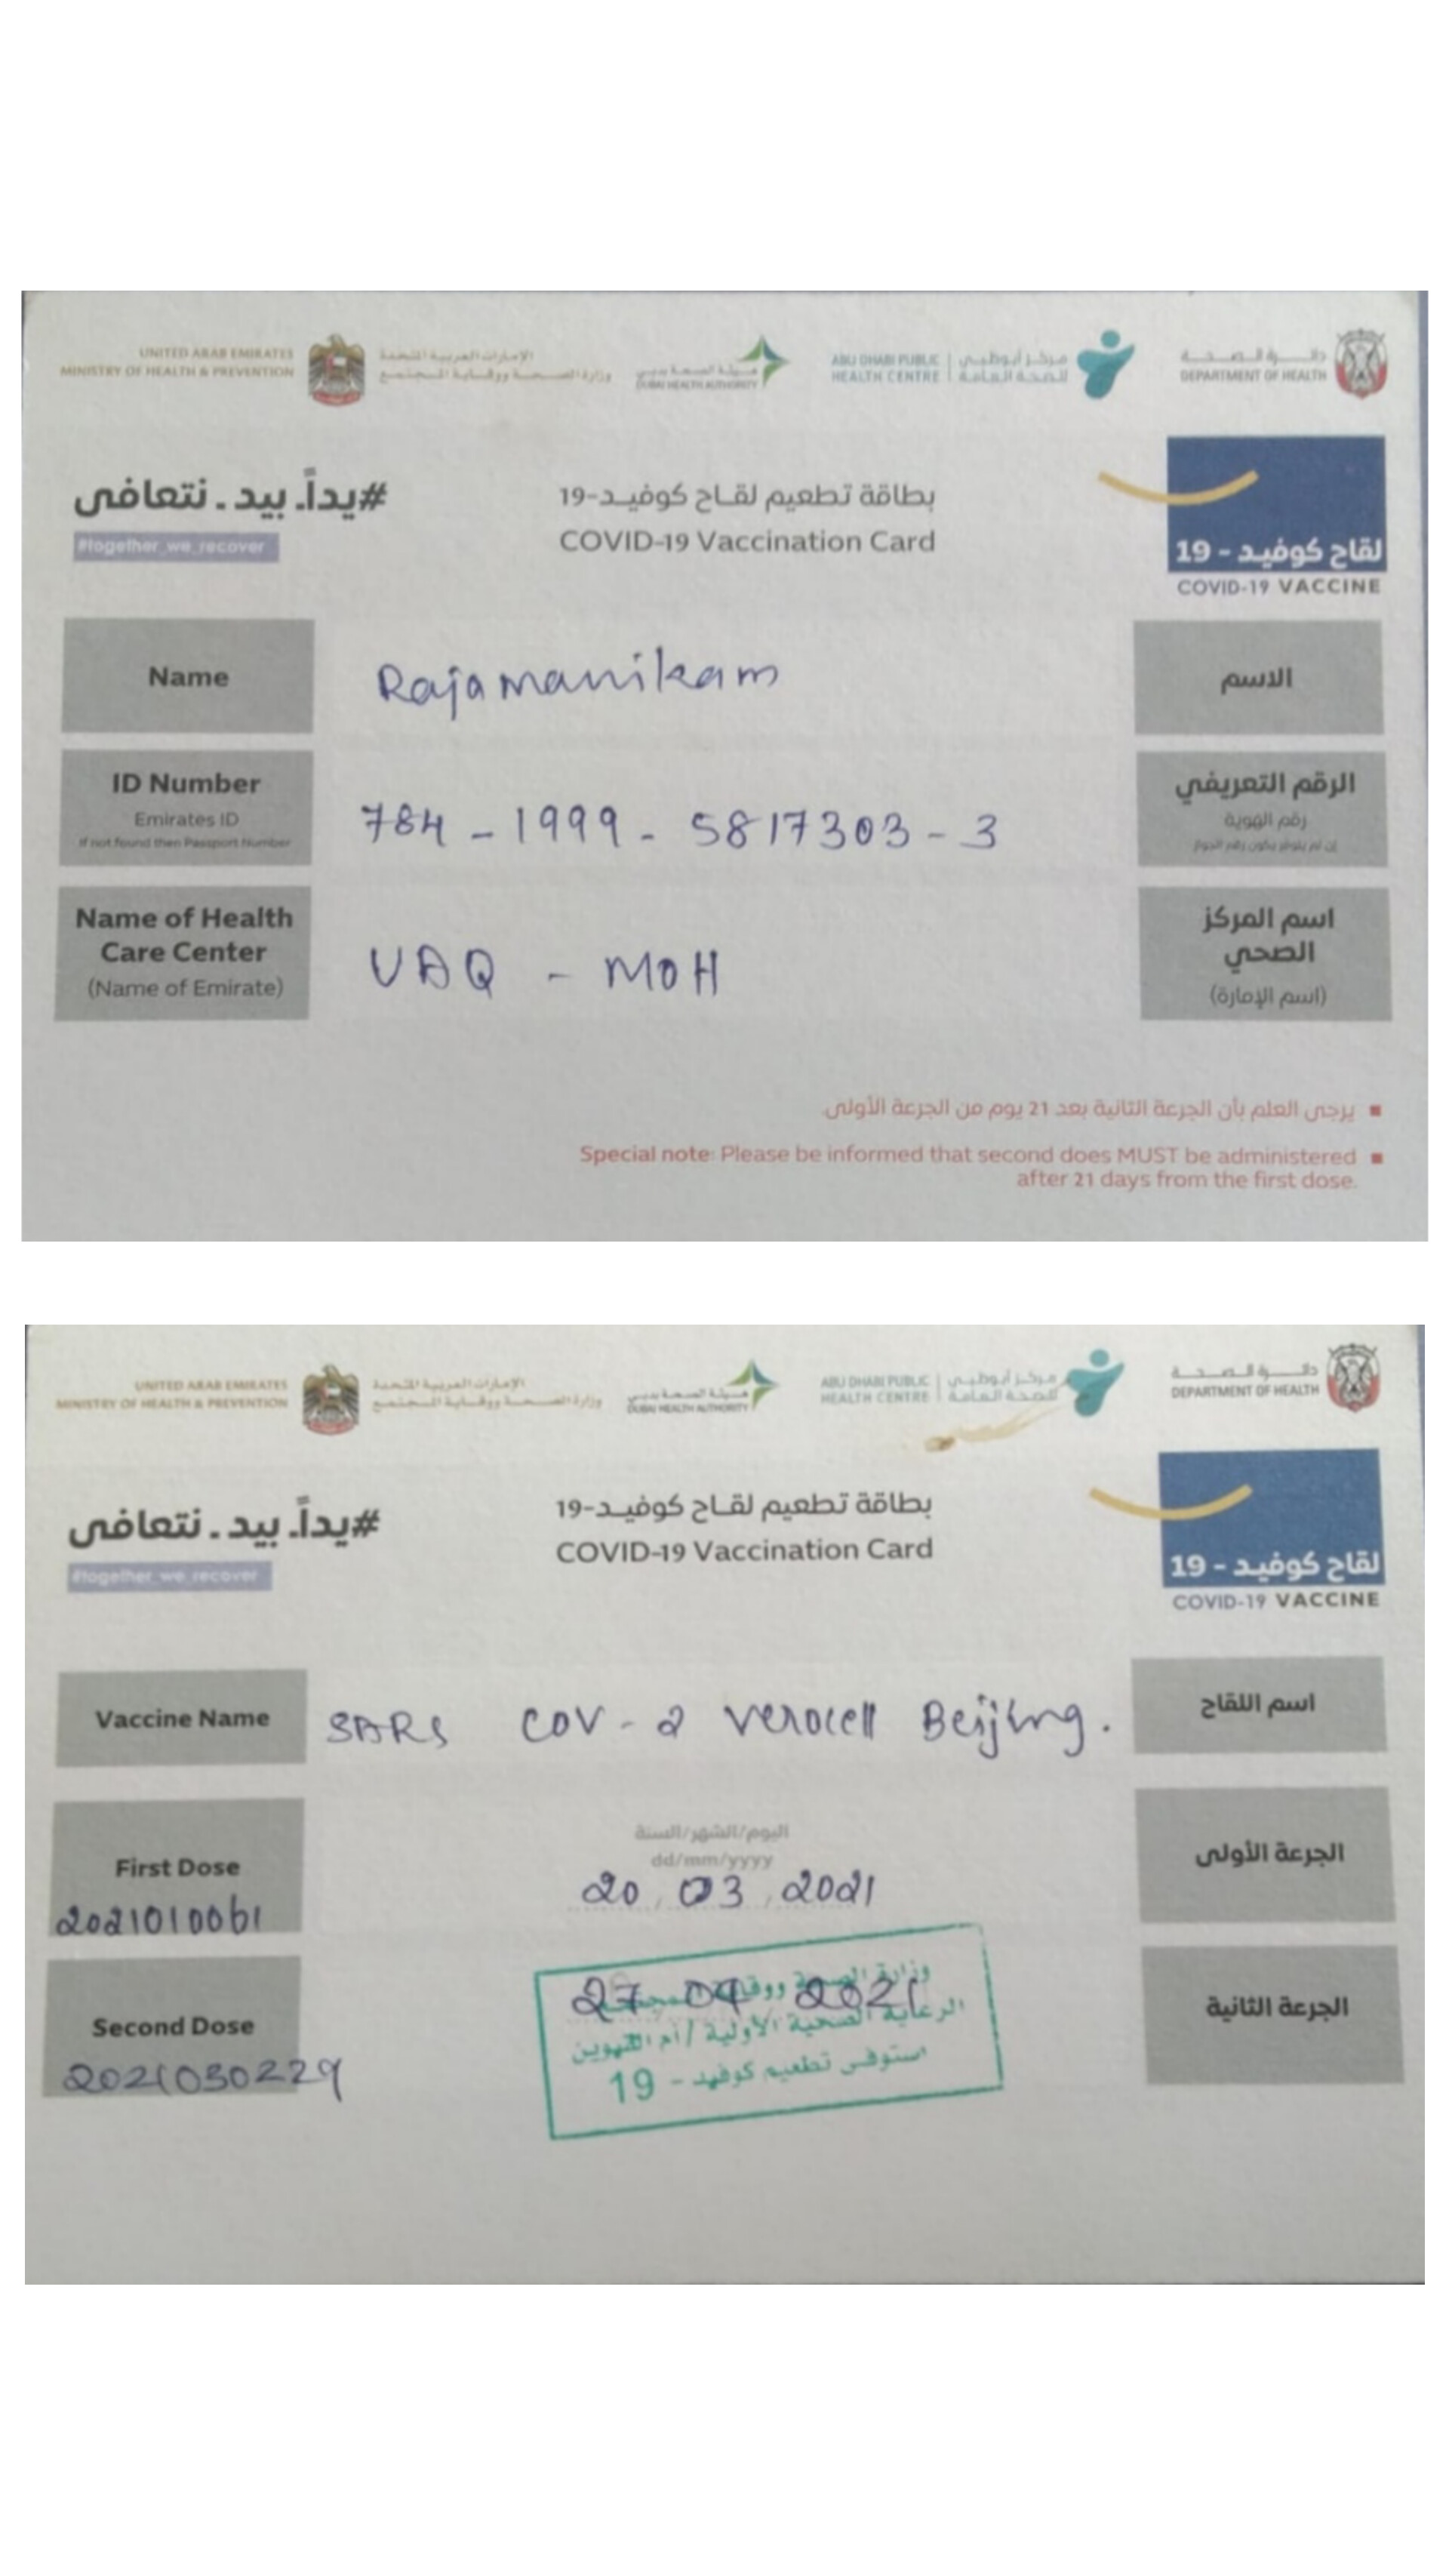 UNITED ARAB EMIRATES
MINISTRY OF HEALTH & PREVENTION
الإمارات العربية المتحدة
وزارة الصحة ووقاية المجتمع
هيئة الصحة بدبي
DUBAI HEALTH AUTHORITY
ABU DHABI PUBLIC
HEALTH CENTRE
مركز أبوظبي
للصحة العامة
دائرة الصحة
DEPARTMENT OF HEALTH
#يداً_بيد_نتعافى
#together_we_recover
بطاقة تطعيم لقاح كوفيد-19
COVID-19 Vaccination Card
لقاح كوفيد - 19
COVID-19 VACCINE
Name
Rajamanikam
الاسم
ID Number
Emirates ID
If not found then Passport Number
784 - 1999 - 5817303 - 3
الرقم التعريفي
رقم الهوية
Name of Health
Care Center
(Name of Emirate)
UAQ - MOH
اسم المركز
الصحي
(اسم الإمارة)
يرجى العلم بأن الجرعة الثانية بعد 21 يوم من الجرعة الأولى.
Special note: Please be informed that second does MUST be administered
after 21 days from the first dose.
UNITED ARAB EMIRATES
MINISTRY OF HEALTH & PREVENTION
الإمارات العربية المتحدة
وزارة الصحة ووقاية المجتمع
هيئة الصحة بدبي
DUBAI HEALTH AUTHORITY
ABU DHABI PUBLIC
HEALTH CENTRE
مركز أبوظبي
للصحة العامة
دائرة الصحة
DEPARTMENT OF HEALTH
#يداً_بيد_نتعافى
#together_we_recover
بطاقة تطعيم لقاح كوفيد-19
COVID-19 Vaccination Card
لقاح كوفيد - 19
COVID-19 VACCINE
Vaccine Name
SARS COV - 2 Verocell Beijing.
اسم اللقاح
First Dose
2021010061
اليوم/الشهر/السنة
dd/mm/yyyy
20 . 03 . 2021
الجرعة الأولى
Second Dose
2021030229
27 04 2021
وزارة الصحة ووقاية المجتمع
الرعاية الصحية الأولية / أم القيوين
استوفى تطعيم كوفيد - 19
الجرعة الثانية